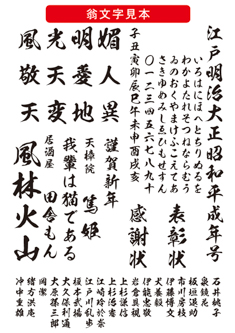 翁文字見本
江戸明治大正昭和平成年号
いろはにほへとちりぬるを
わかよたれそつねならむう
ゐのおくやまけふこえてあ
さきゆめみしゑひもせすん
〇一二三四五六七八九十
子丑寅卯辰巳午未申酉戌亥
風光明媚
敬天愛人
天変地異
表彰状
感謝状
謹賀新年
天璋院
篤姫
我輩は猫である
居酒屋
田舎もん
風林火山
石井桃子
泉鏡花
板垣退助
市川房枝
伊藤博文
犬養毅
伊能忠敬
岩倉具視
上杉謙信
上杉治憲
江崎玲於奈
江戸川乱歩
榎本武揚
大久保利通
大原孫三郎
岡潔
緒方洪庵
沖中重雄